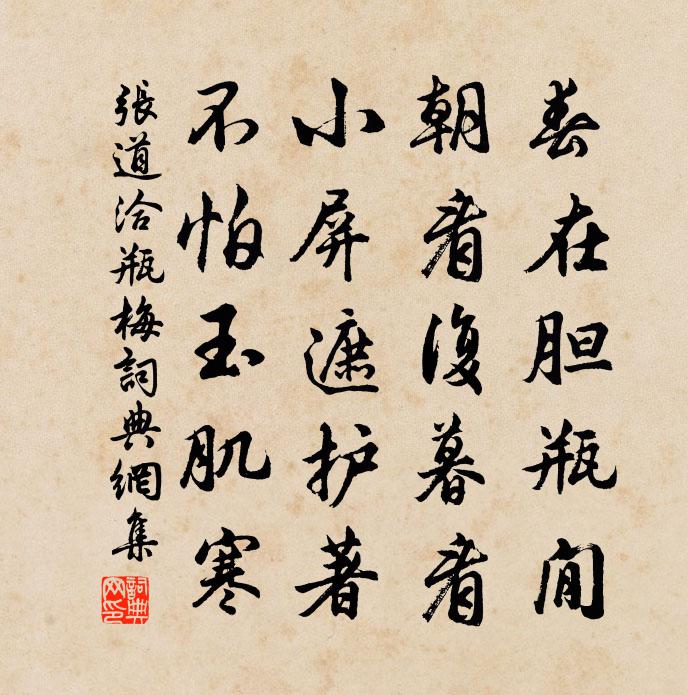 春在胆瓶间
朝看復暮看
小屏遮护著
不怕玉肌寒
張道洽瓶梅詞典網集
詞典網印